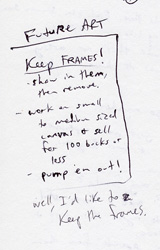 Future ART
Keep FRAMES!
- show in them,
then remove.
- work on small
to medium sized
canvas & sell
for 100 bucks or
less
- pump em out!
well, I'd like to
keep the frames.